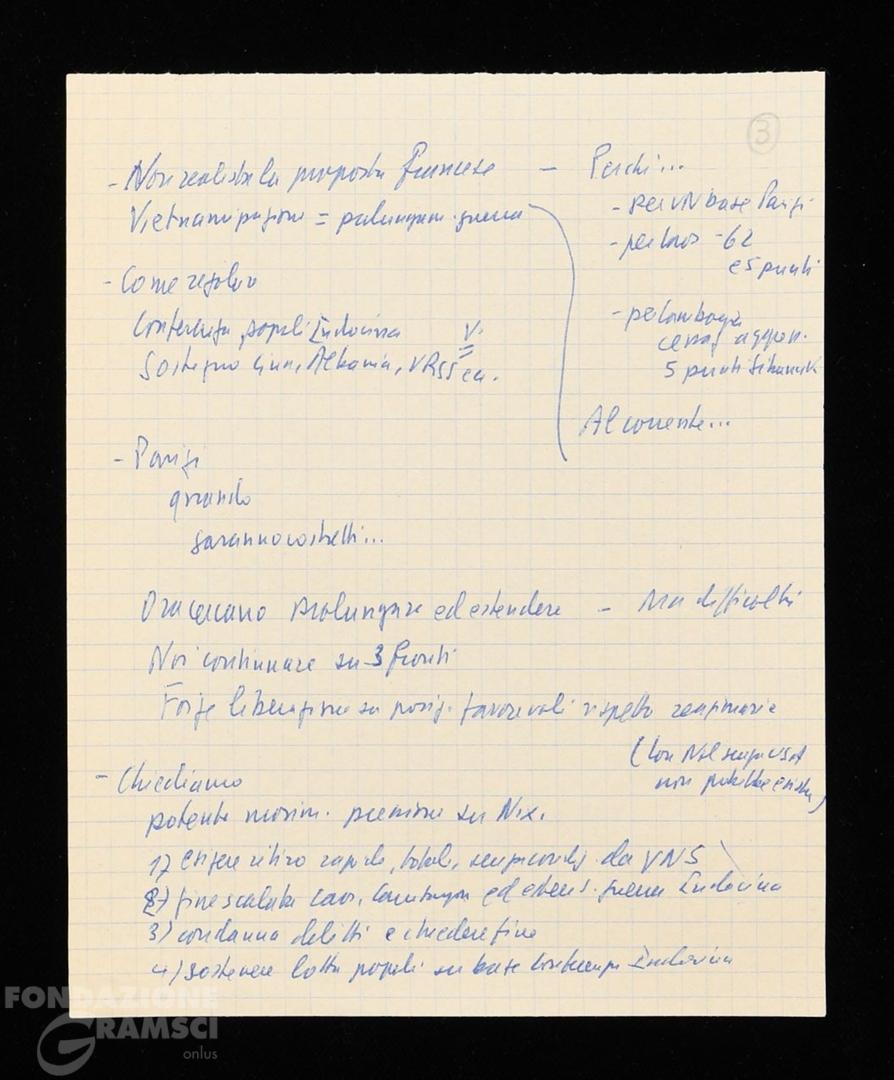 3
- Non realista la proposta francese
Vietnamizzazione = prolungam. guerra
- Perchè...
- per VN base Parigi
- per Laos -62
e 5 punti
- per Cambogia
cessaz. aggres.
5 punti Sihanuk
Al corrente...
- Come risolver
Conferenza popoli Indocina
Sostegno Cina, Albania, URSS ecc.
V.
- Parigi
quando
saranno costretti...
Ora cercano prolungare ed estendere - Ma difficoltà
Noi continuare su 3 fronti
Forze liberazione su posiz. favorevoli rispetto reazionarie
(Lon Nol senza USA
non potrebbe esistere)
- Chiediamo
potente movim. pressione su Nix.
1) esigere ritiro rapido, totale, senza condiz. da VNS
2) fine scalata Laos, Cambogia ed estens. guerra Indocina
3) condanna delitti e chiedere fine
4) sostenere lotta popoli su base Conferenza Indocina
FONDAZIONE
GRAMSCI
onlus